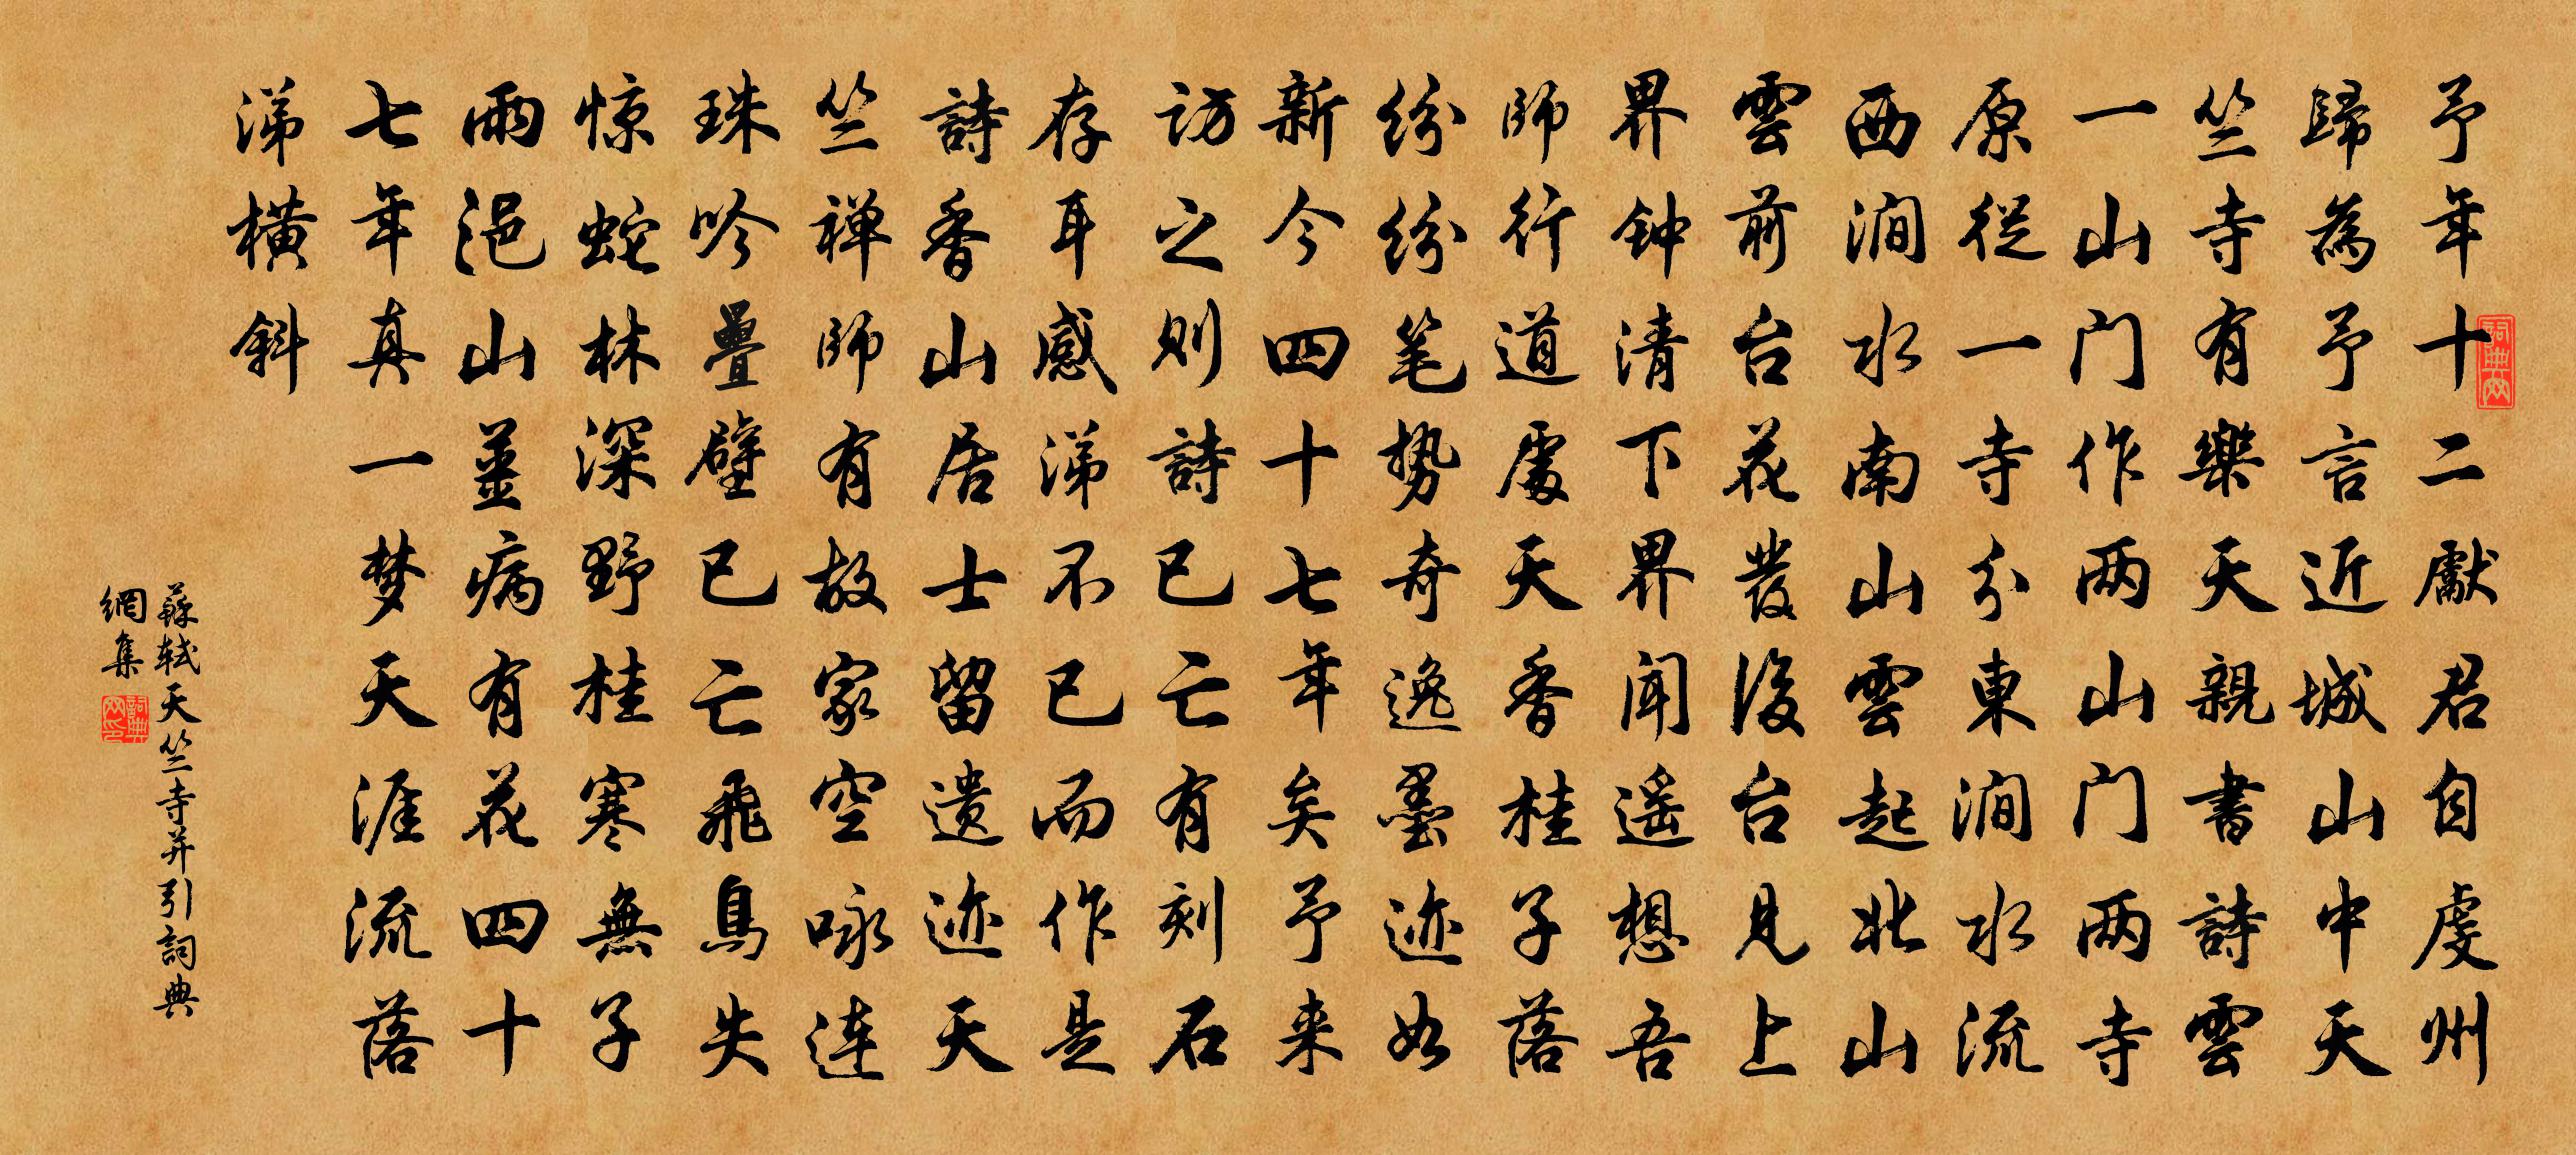 予年十二獻君自虔州
歸為予言近城山中天
竺寺有樂天親書詩雲
一山门作两山门两寺
原從一寺分東澗水流
西澗水南山雲起北山
雲前台花發後台見上
界钟清下界闻遥想吾
師行道處天香桂子落
纷纷笔势奇逸墨迹如
新今四十七年矣予来
访之则詩已亡有刻石
存耳感涕不已而作是
詩香山居士留遗迹天
竺禅師有故家空咏连
珠吟疊壁已亡飛鳥失
惊蛇林深野桂寒無子
雨浥山薑病有花四十
七年真一梦天涯流落
涕橫斜
蘇轼天竺寺并引詞典
網集
詞典网
詞典网印